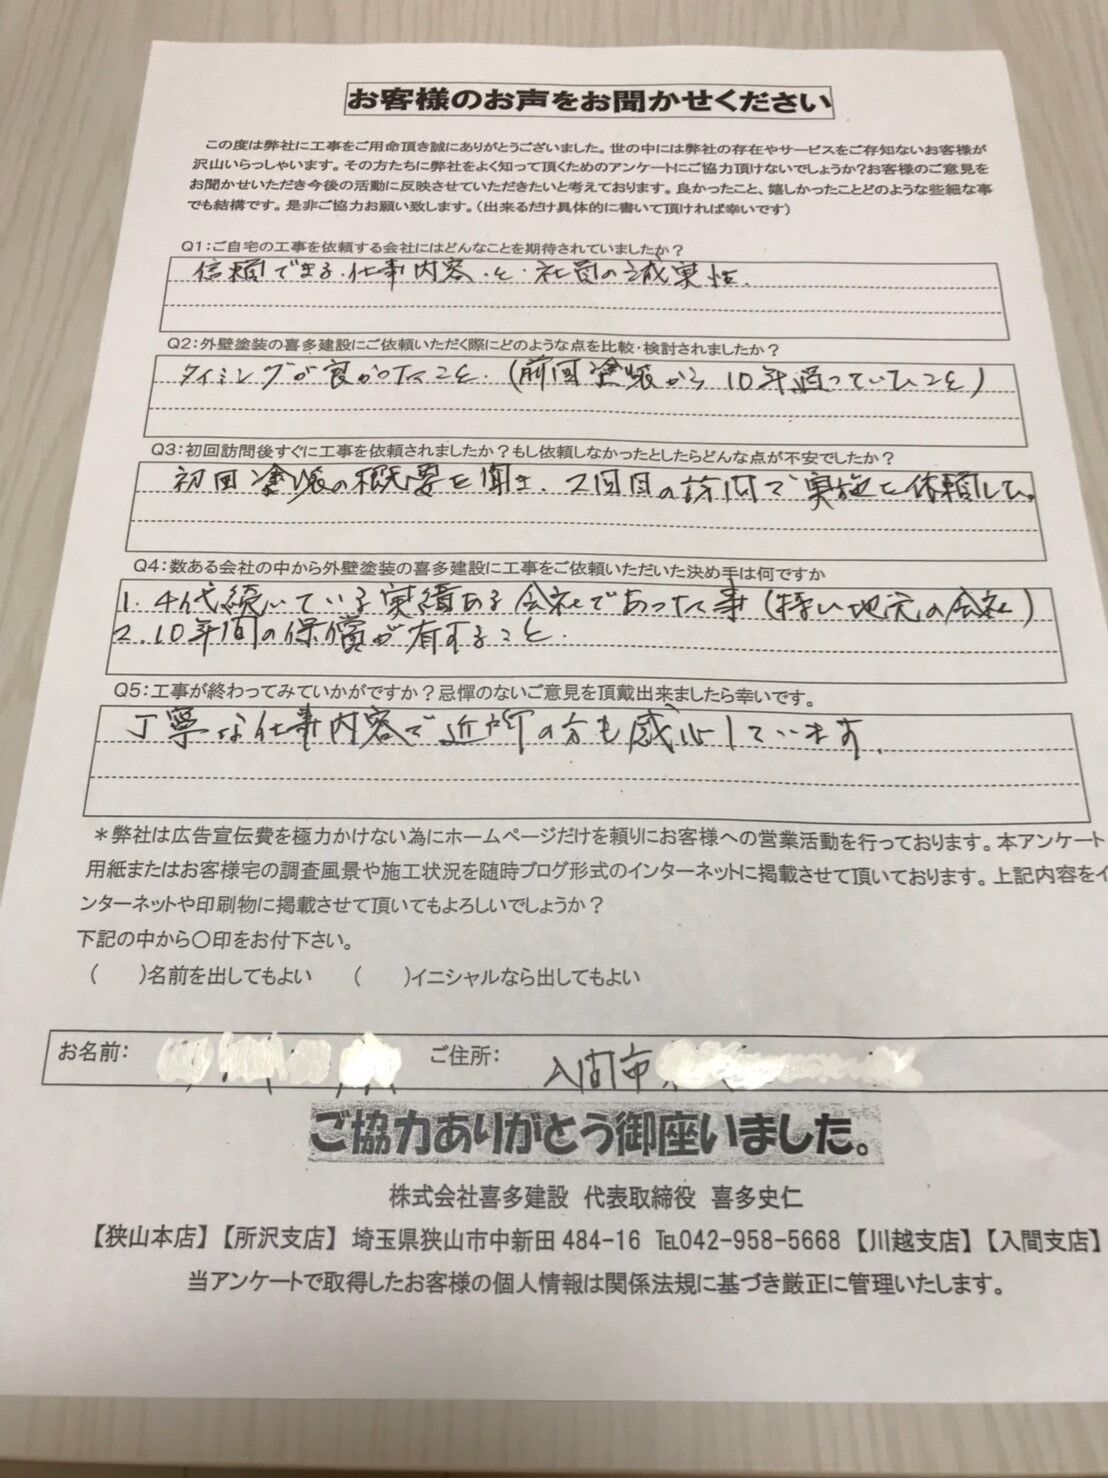 お客様のお声をお聞かせください
この度は弊社に工事をご用命頂き誠にありがとうございました。世の中には弊社の存在やサービスをご存知ないお客様が
沢山いらっしゃいます。その方たちに弊社をよく知って頂くためのアンケートにご協力頂けないでしょうか?お客様のご意見を
お聞かせいただき今後の活動に反映させていただきたいと考えております。良かったこと、嬉しかったことどのような些細な事
でも結構です。是非ご協力お願い致します。(出来るだけ具体的に書いて頂ければ幸いです)
Q1:ご自宅の工事を依頼する会社にはどんなことを期待されていましたか?
信頼できる仕事内容と社員の誠実性。
Q2:外壁塗装の喜多建設にご依頼いただく際にどのような点を比較・検討されましたか?
タイミングが良かったこと。(前回塗装から10年過っていたこと)
Q3:初回訪問後すぐに工事を依頼されましたか?もし依頼しなかったとしたらどんな点が不安でしたか?
初回塗装の概要を聞き、2回目の訪問で実施を依頼した。
Q4:数ある会社の中から外壁塗装の喜多建設に工事をご依頼いただいた決め手は何ですか
1. 4代続いている実績ある会社であった事( 地元の会社)
2. 10年間の保償が有すること.
Q5:工事が終わってみていかがですか?忌憚のないご意見を頂戴出来ましたら幸いです。
丁寧な仕事内容で近所の方も感心しています.
*弊社は広告宣伝費を極力かけない為にホームページだけを頼りにお客様への営業活動を行っております。本アンケート
用紙またはお客様宅の調査風景や施工状況を随時ブログ形式のインターネットに掲載させて頂いております。上記内容をイ
ンターネットや印刷物に掲載させて頂いてもよろしいでしょうか?
下記の中から〇印をお付下さい。
( )名前を出してもよい ( )イニシャルなら出してもよい
お名前: ご住所: 入間市
ご協力ありがとう御座いました。
株式会社喜多建設 代表取締役 喜多史仁
【狭山本店】【所沢支店】 埼玉県狭山市中新田484-16 ℡042-958-5668 【川越支店】【入間支店】
当アンケートで取得したお客様の個人情報は関係法規に基づき厳正に管理いたします。